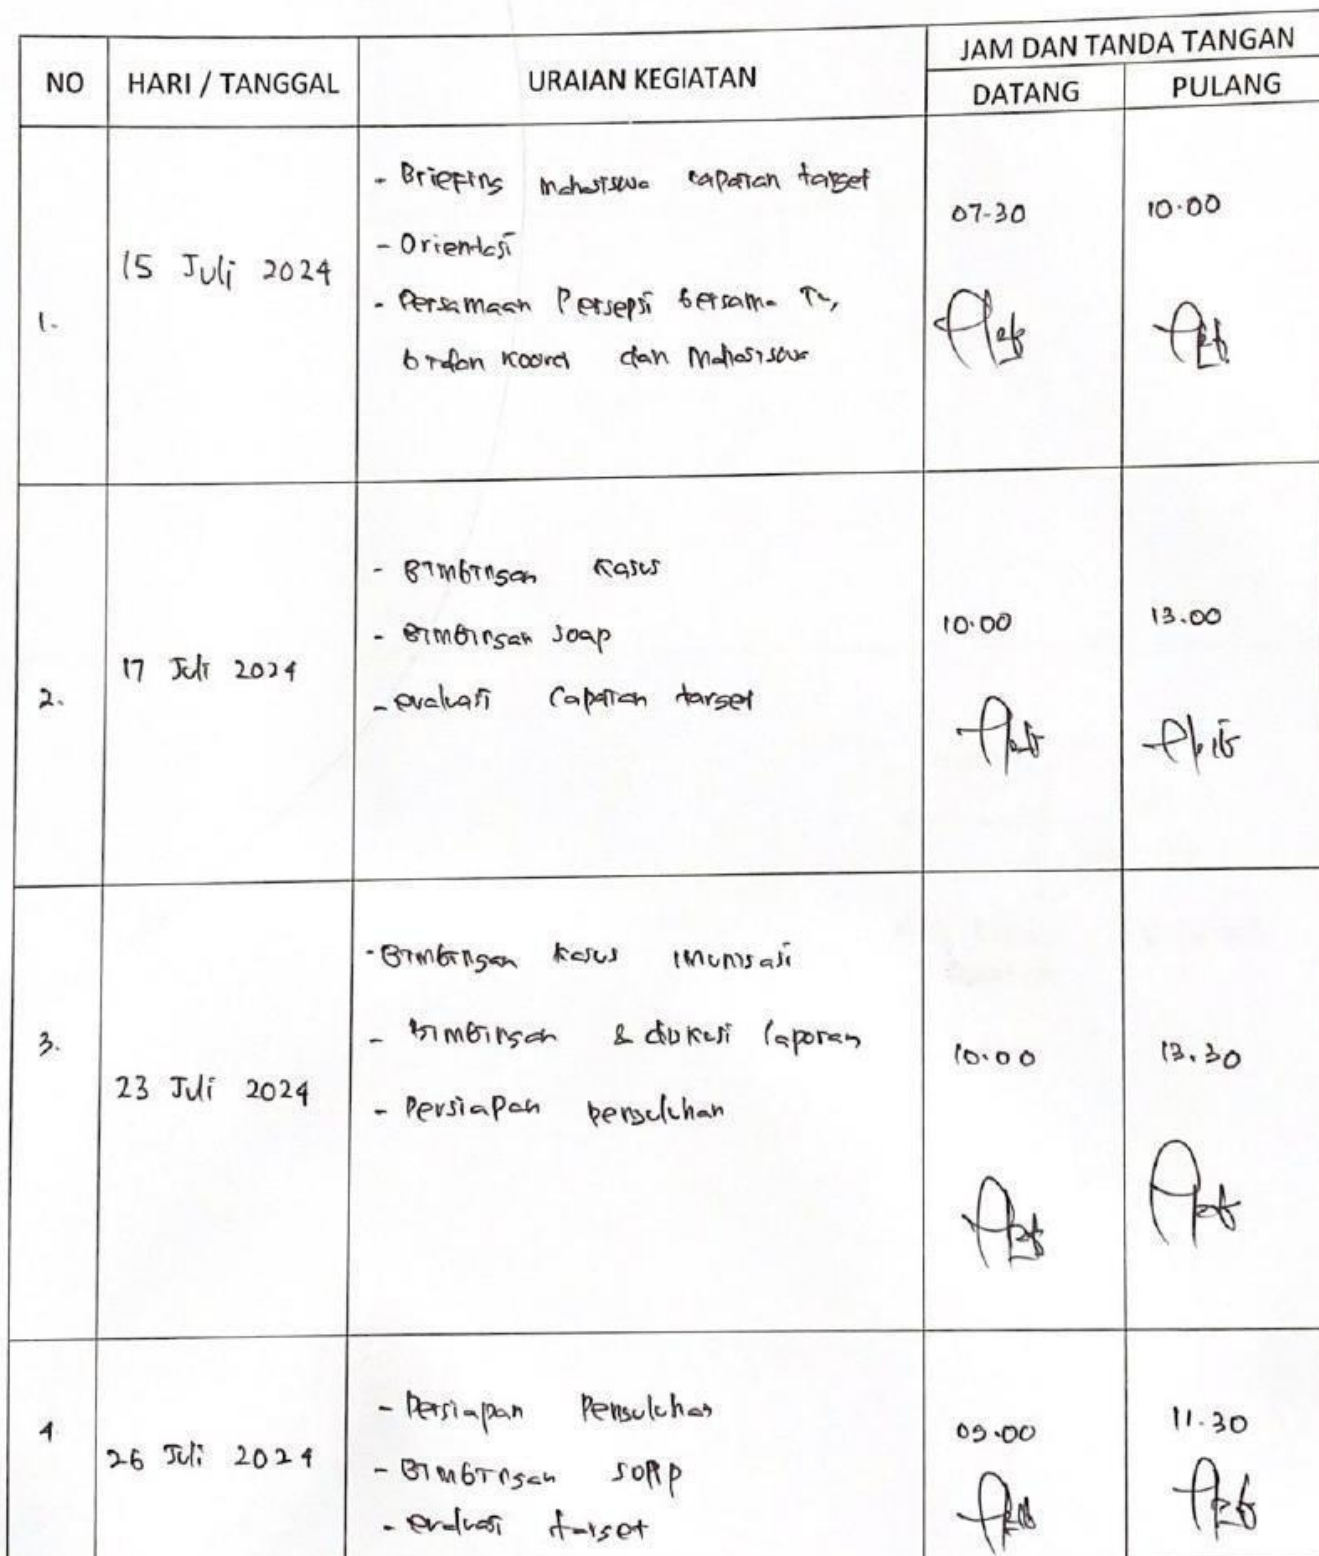 NO HARI / TANGGAL URAIAN KEGIATAN JAM DAN TANDA TANGAN
DATANG PULANG
1. 15 Juli 2024
- Briefing mahasiswa capaian target
- Orientasi
- Persamaan Persepsi bersama
bidan koord dan Mahasiswa
07-30 10.00
2. 17 Juli 2024
- Bimbingan Kasus
- Bimbingan soap
- evaluasi Capaian target
10.00 13.00
3. 23 Juli 2024
- Bimbingan kasus imunisasi
- Bimbingan & laporan
- Persiapan penyuluhan
10.00 13.30
4. 26 Juli 2024
- Persiapan Penyuluhan
- Bimbingan SOAP
- evaluasi target
09.00 11.30